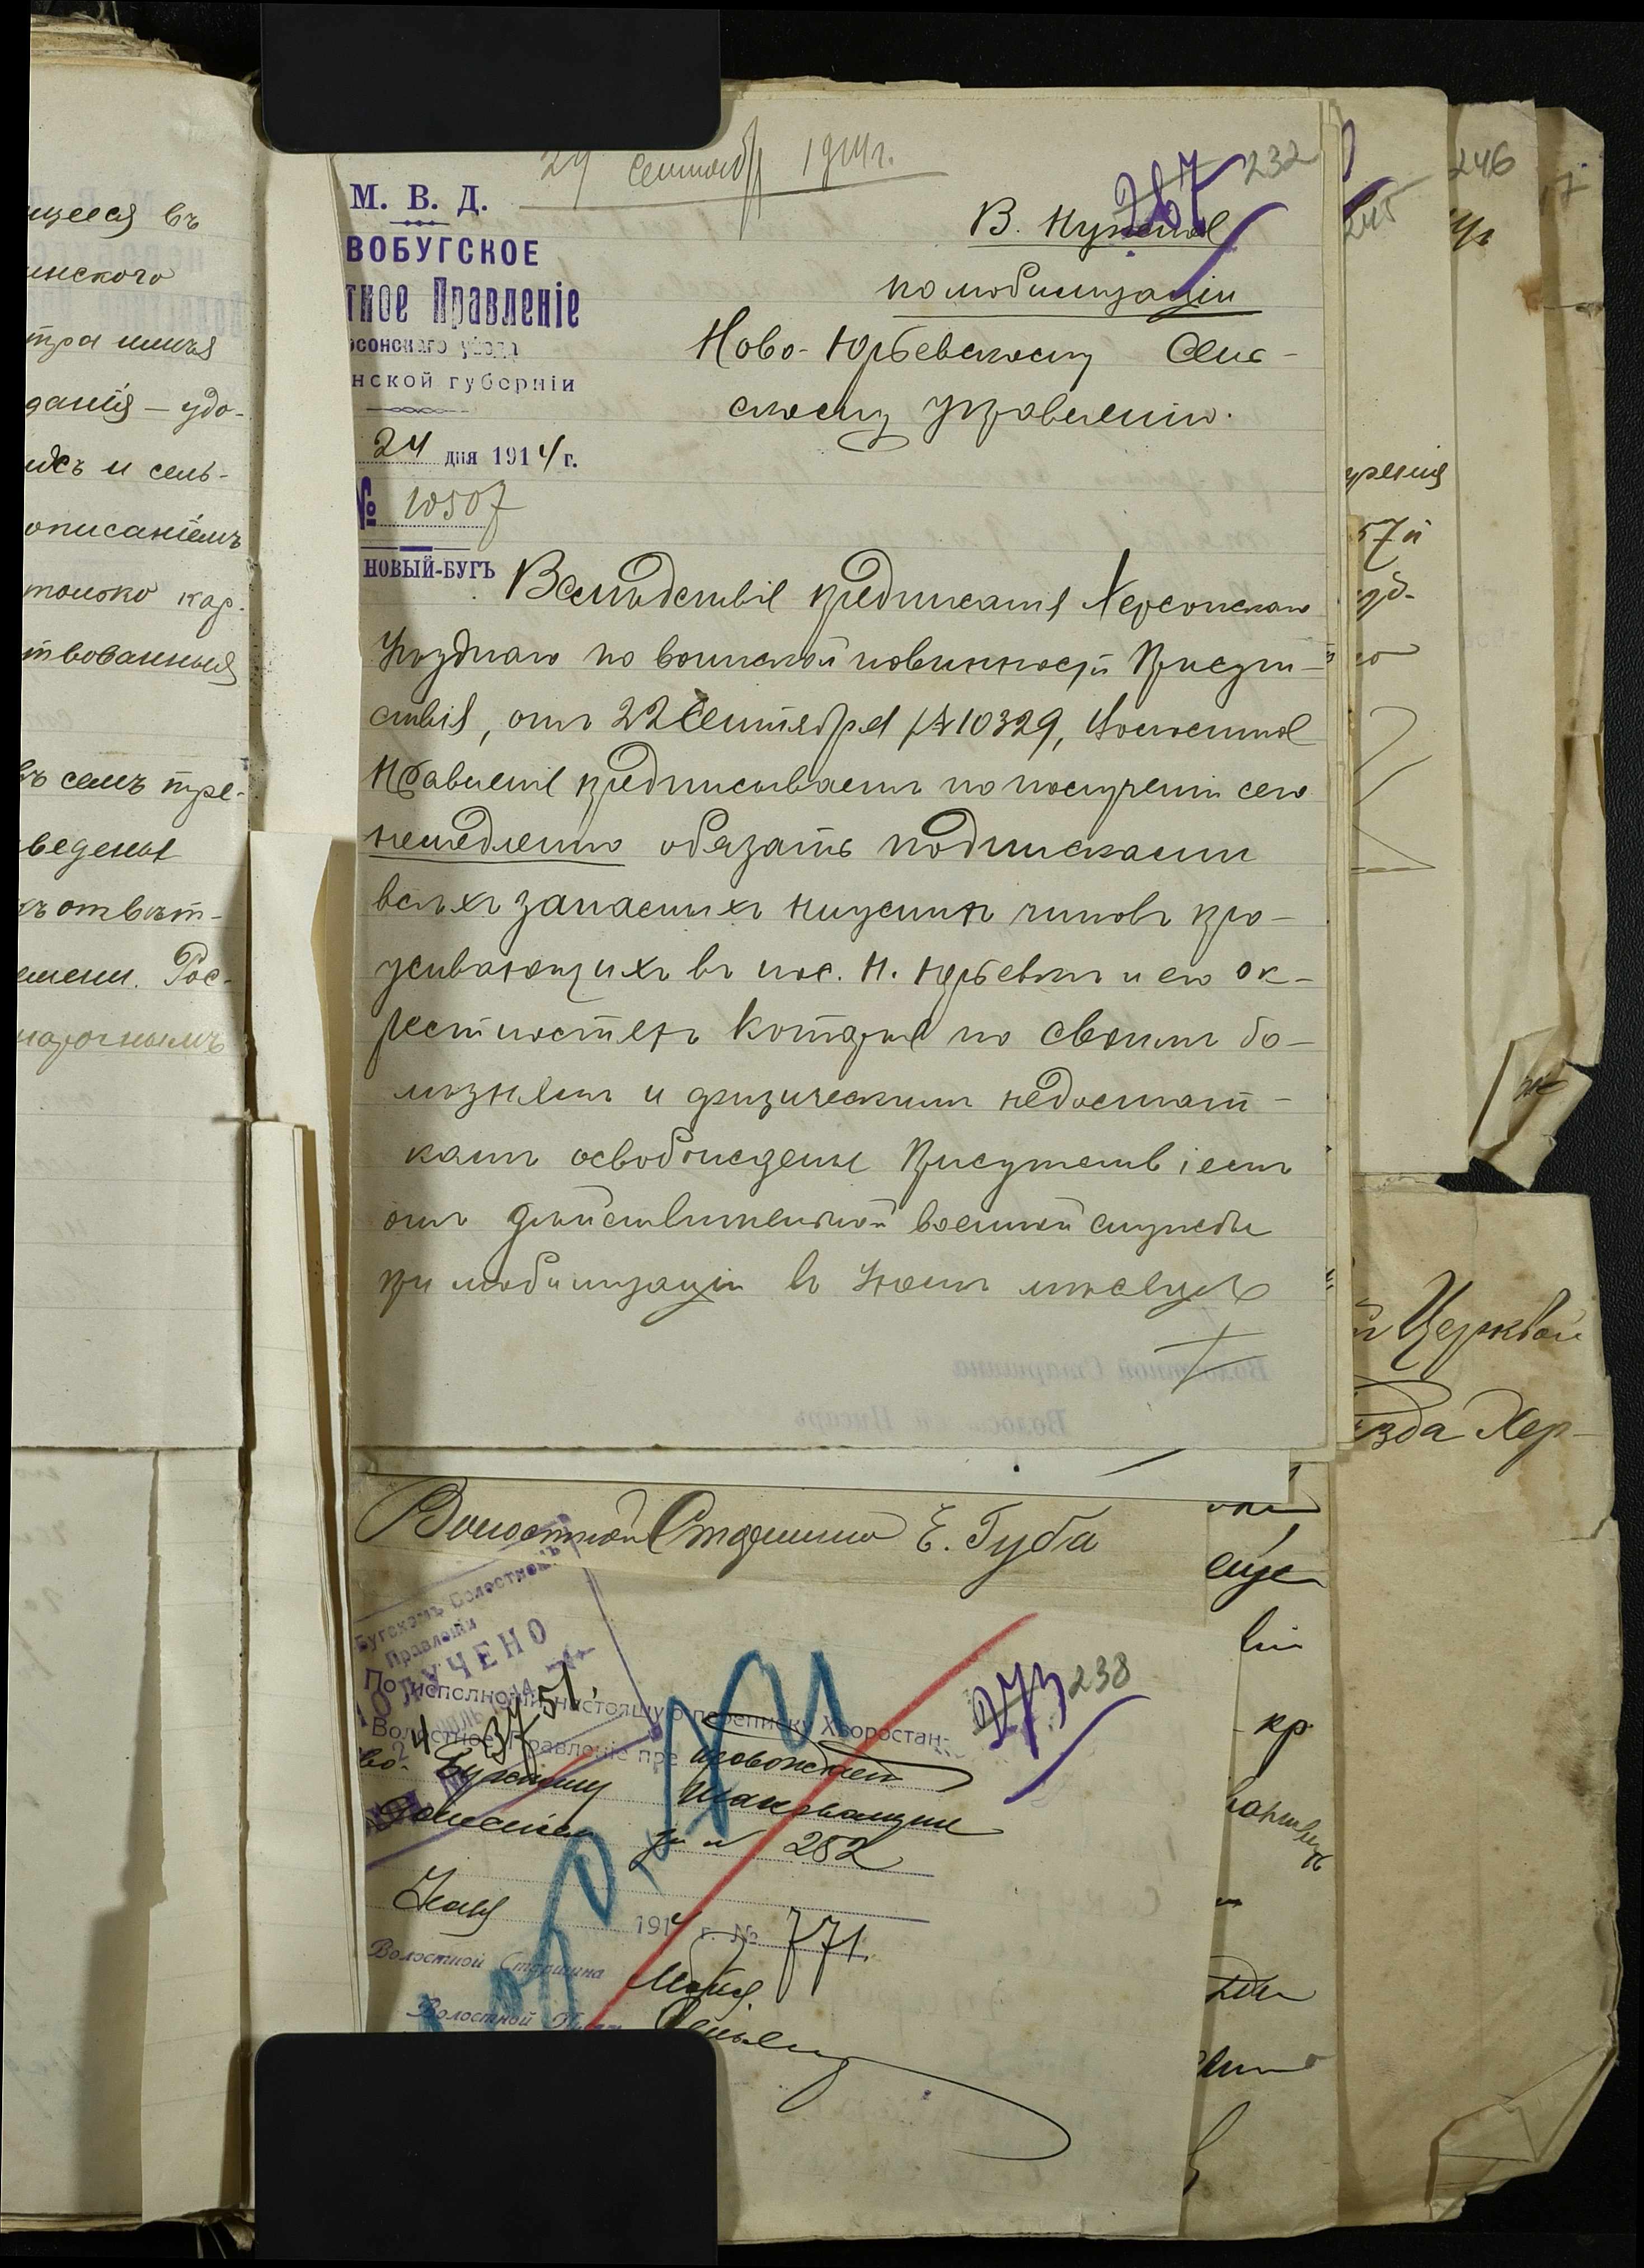 29 сентября 1914 г.
267 232
М. В. Д.
ВОБУГСКОЕ
тное Правленіе
рсонскаго уѣзда
нской губерніи
24 дня 1914 г.
№ 10507
НОВЫЙ-БУГЪ
В. Нужное
по мобилизаціи
Ново-Юрьевскому Сель-
скому управленію.
Вслѣдствіе предписанія Херсонскаго
Уѣзднаго по воинской повинности Присут-
ствія, отъ 22 Сентября № 10329, Волостное
Правленіе предписываетъ по полученіи сего
немедленно обязать подписками
всѣхъ запасныхъ нижнихъ чиновъ про-
живающихъ въ пос. Н. Юрьевкѣ и его ок-
рестностяхъ которые по своимъ бо-
лѣзнямъ и физическимъ недостат-
камъ освобождены Присутствіемъ
отъ дѣйствительной военной службы
при мобилизаціи въ Іюлѣ мѣсяцѣ
Волостной Старшина Е. Губа
Бугскомъ Волостномъ
Правленіи
ПОЛУЧЕНО
273 238
По исполненіи настоящую переписку Хворостан-
Волостное Правленіе пре провождает
во-Бугскому
донесеніем за № 282
1914 г. № 771.
Волостной Старшина
Волостной
щееся въ
инского
данія — удо-
ись и сель-
описаніемъ
только кар-
твованныя
въ семъ тре-
ведены
хъ отвѣт-
емени. Рос-
нарочнымъ
246
245
57й
Церквой
ѣзда Хер-
еще
кр